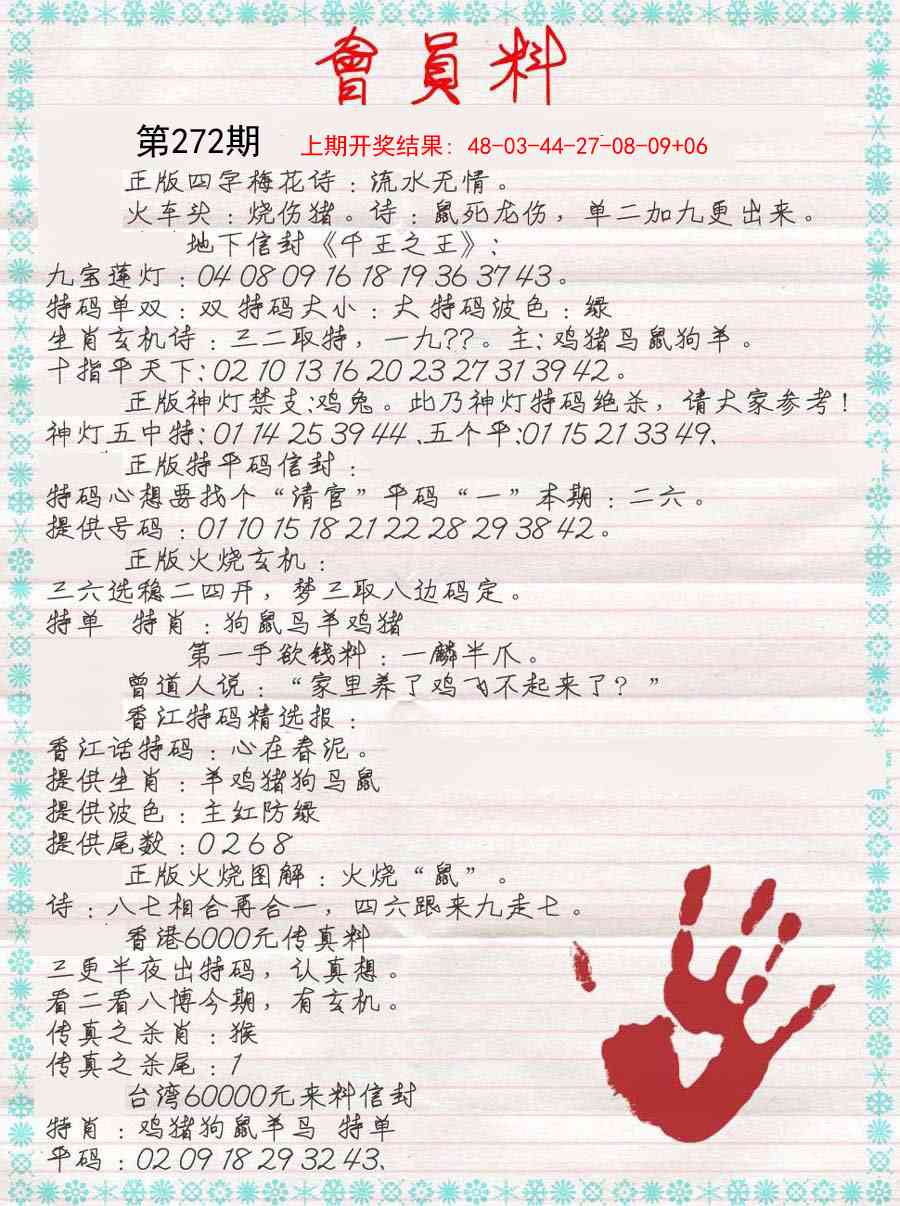 會員料
第272期 上期开奖结果：48-03-44-27-08-09+06
正版四字梅花诗：流水无情。
火车头：烧伤猪。诗：鼠死龙伤，单二加九更出来。
地下信封《千王之王》：
九宝莲灯：04 08 09 16 18 19 36 37 43。
特码单双：双 特码大小：大 特码波色：绿
生肖玄机诗：三二取特，一九??。主：鸡猪马鼠狗羊。
十指平天下：02 10 13 16 20 23 27 31 39 42。
正版神灯禁支:鸡兔。此乃神灯特码绝杀，请大家参考！
神灯五中特：01 14 25 39 44、五个平:01 15 21 33 49、
正版特平码信封：
特码心想要找个“请官”平码“一”本期：二六。
提供号码：01 10 15 18 21 22 28 29 38 42。
正版火烧玄机：
三六选稳二四开，梦三取八边码定。
特单 特肖：狗鼠马羊鸡猪
第一手欲钱料：一麟半爪。
曾道人说：“家里养了鸡飞不起来了？”
香江特码精选报：
香江话特码：心在春泥。
提供生肖：羊鸡猪狗马鼠
提供波色：主红防绿
提供尾数：0 2 6 8
正版火烧图解：火烧“鼠”。
诗：八七相合再合一，四六跟来九走七。
香港6000元传真料
三更半夜出特码，认真想。
看二看八博今期，有玄机。
传真之杀肖：猴
传真之杀尾：1
台湾60000元来料信封
特肖：鸡猪狗鼠羊马 特单
平码：02 09 18 29 32 43、